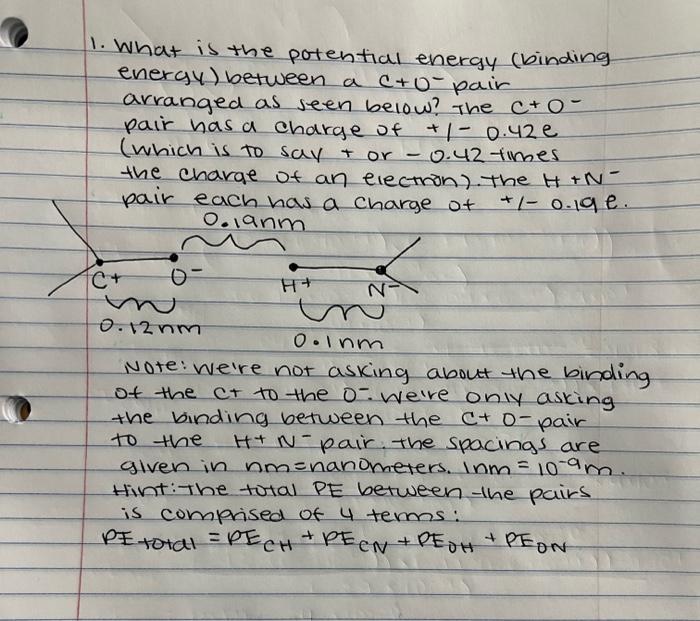 1. What is the potential energy (binding
energy) between a C+O- pair
arranged as seen below? The C+O-
pair has a charge of +/- 0.42e
(which is to say + or - 0.42 times
the charge of an electron). The H+N-
pair each has a charge of +/- 0.19e.
0.19nm
C+ O- H+ N-
0.12nm
0.1nm
Note: we're not asking about the binding
of the C+ to the O-. we're only asking
the binding between the C+O- pair
to the H+N- pair. the spacings are
given in nm=nanometers. 1nm = 10-9m.
Hint: The total PE between the pairs
is comprised of 4 terms:
PE total = PE CH + PE CN + PE OH + PE ON